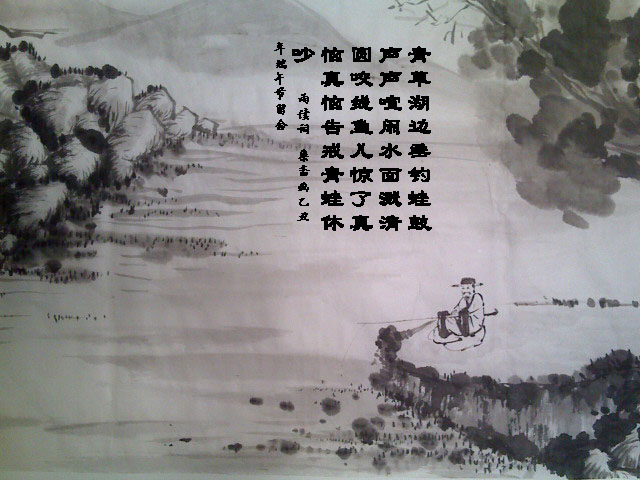 青草湖边垂钓蛙鼓
声声喧闹水面溅清
圆咬线鱼儿惊了真
恼真恼告戒青蛙休
吵
雨佳词 集古画乙丑
年端午节留念